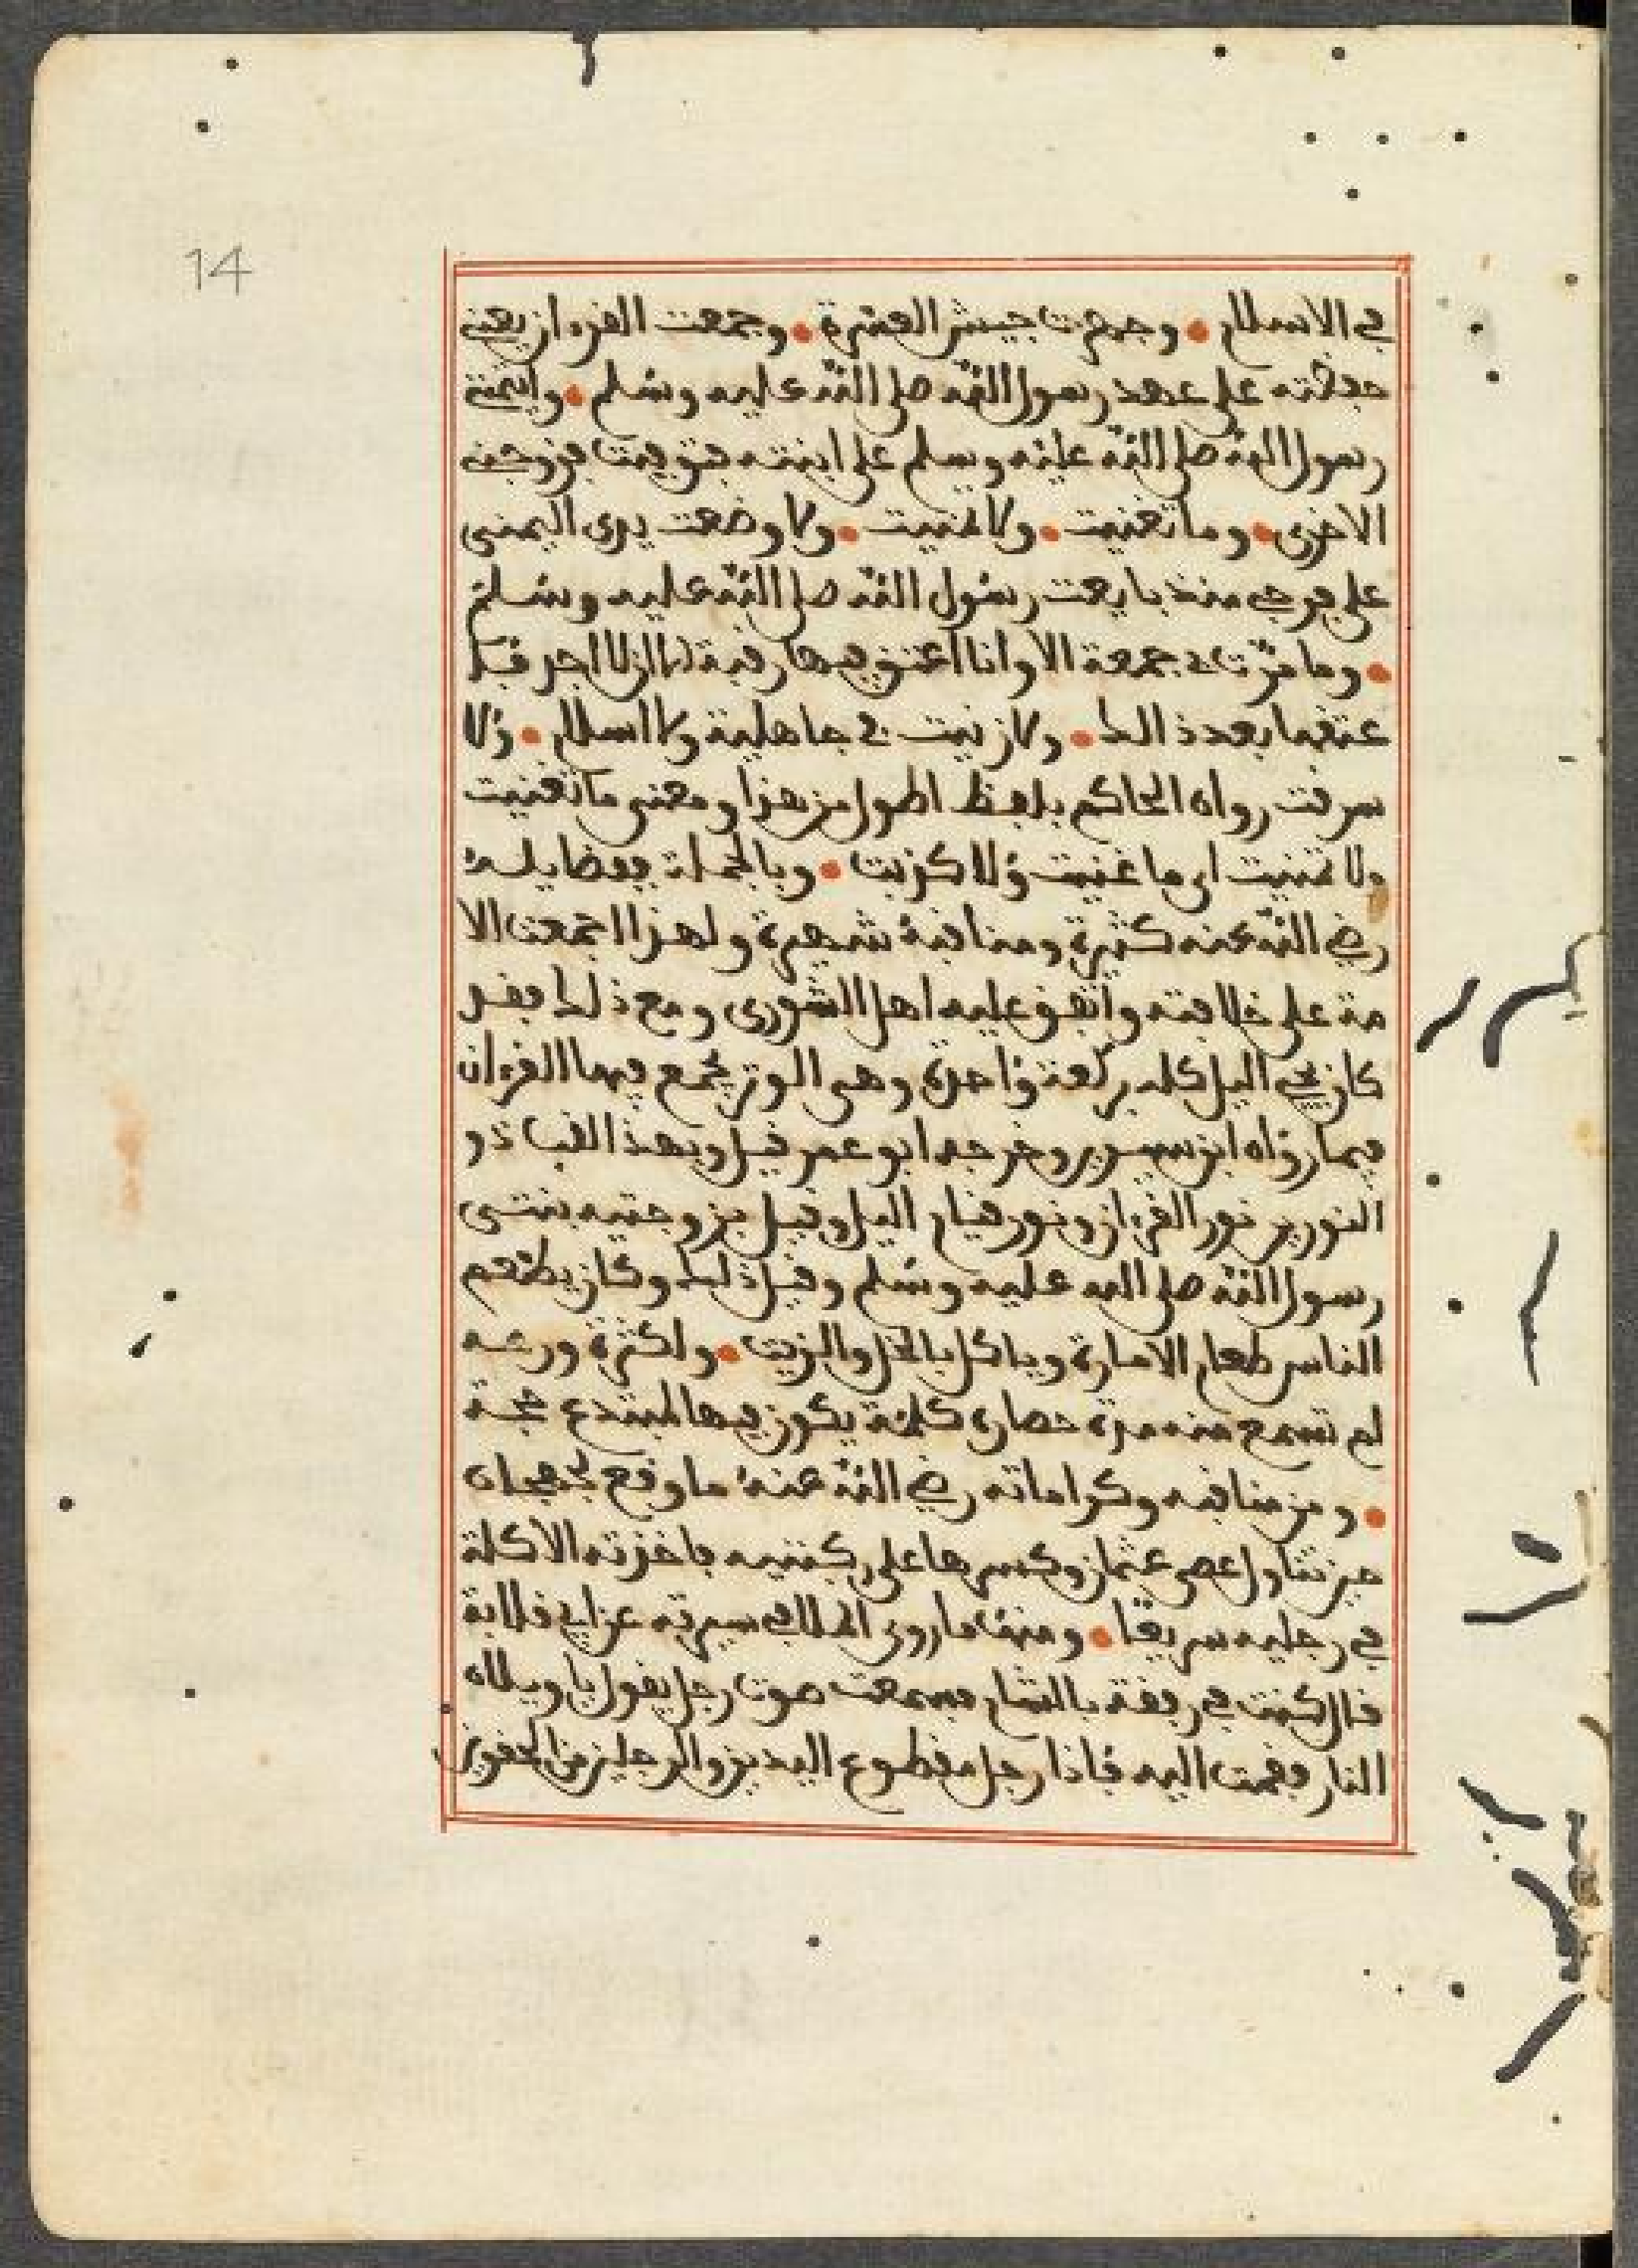 14
في الاسلام • وجهزت جيش العسرة • وجمعت القرءان يعني
حفظته على عهد رسول الله صلى الله عليه وسلم • وايتمنني
رسول الله صلى الله عليه وسلم على ابنته فتوفيت فزوجني
الاخرى • وما تغنيت • ولا تمنيت • ولا وضعت يدي اليمنى
على فرجي منذ بايعت رسول الله صلى الله عليه وسلم
• وما مرت بي جمعة الا وانا اعتق فيها رقبة الا ان لا اجد فبد
عتقها بعد ذالك • ولا زنيت في جاهلية ولا اسلام • ولا
سرقت رواه الحاكم بلفظ اطول من هذا ومعنى ما تغنيت
ولا تمنيت اي ما غنيت ولا كذبت • وبالجملة ففضايله
رضي الله عنه كثيرة ومناقبه شهيرة ولهذا اجمعت الا
مة على خلافته واتفق عليه اهل الشورى ومع ذلك فقد
كان يحيي اليل كله بركعة واحدة وهي الوتر يجمع فيها القرءان
فيما رواه ابن سيرين وخرجه ابو عمر قيل وبهذا لقب ذو
النورين نور القرءان ونور قيام اليل وقيل بزوجتيه بنتى
رسول الله صلى الله عليه وسلم وقيل ذلك وكان يطعم
الناس طعام الامارة وياكل بالخل والزيت • ولكثرة ورعه
لم تسمع منه مدة حصاره كلمة يكون فيها لمبتدع حجة
• ومن مناقبه وكراماته رضي الله عنه ما وقع لجهجاه
حين تناول عصى عثمان وكسرها على ركبتيه فاخذته الاكلة
في رجليه سريعا • ومنها ما روى الملا في سيرته عن ابي قلابة
قال كنت في رفقة بالشام فسمعت صوت رجل يقول يا ويلاه
النار فقمت اليه فاذا رجل مقطوع اليدين والرجلين من الحقوين